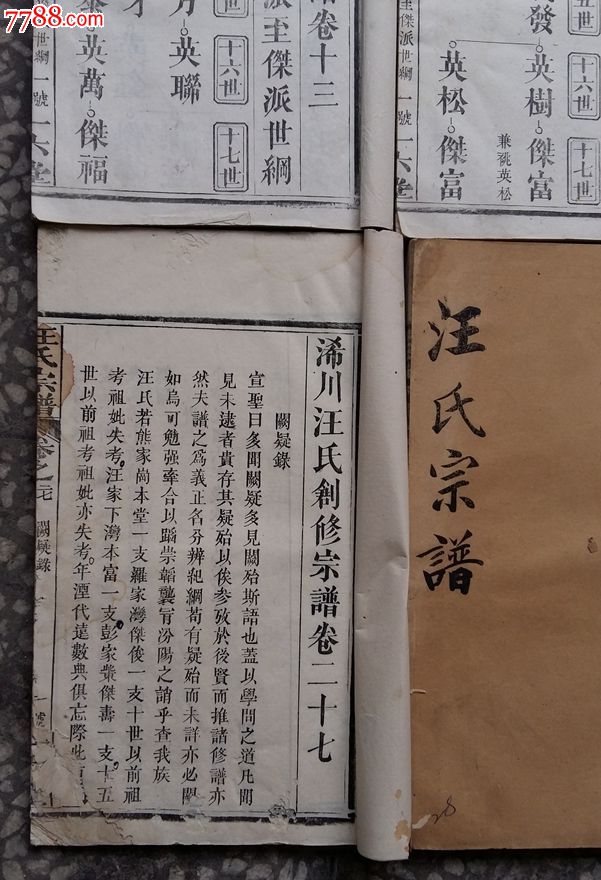 7788.com
卷十三
派至傑派世綱
十六世
十七世
英聯
英萬 傑福
世綱 一號 一六堂
五世
十六世
十七世
發 英樹 傑富
兼祧英松
英松 傑富
派世綱 一號 一六堂
浠川汪氏創修宗譜卷二十七
闕疑錄
宣聖曰多聞闕疑多見闕殆斯語也蓋以學問之道凡聞
見未逮者貴存其疑殆以俟參攷於後賢而推諸修譜亦
然夫譜之為義正名分辨紀綱苟有疑殆而未詳亦必闕
如烏可勉强牽合以蹈崇韜襲冒汾陽之誚乎查我族
汪氏若熊家崗本堂一支羅家灣傑俊一支十世以前祖
考祖妣失考汪家下灣本富一支彭家粊傑壽一支十五
世以前祖考祖妣亦失考年湮代遠數典俱忘際此
汪氏宗譜 卷之二七 闕疑錄
號
汪氏宗譜
28